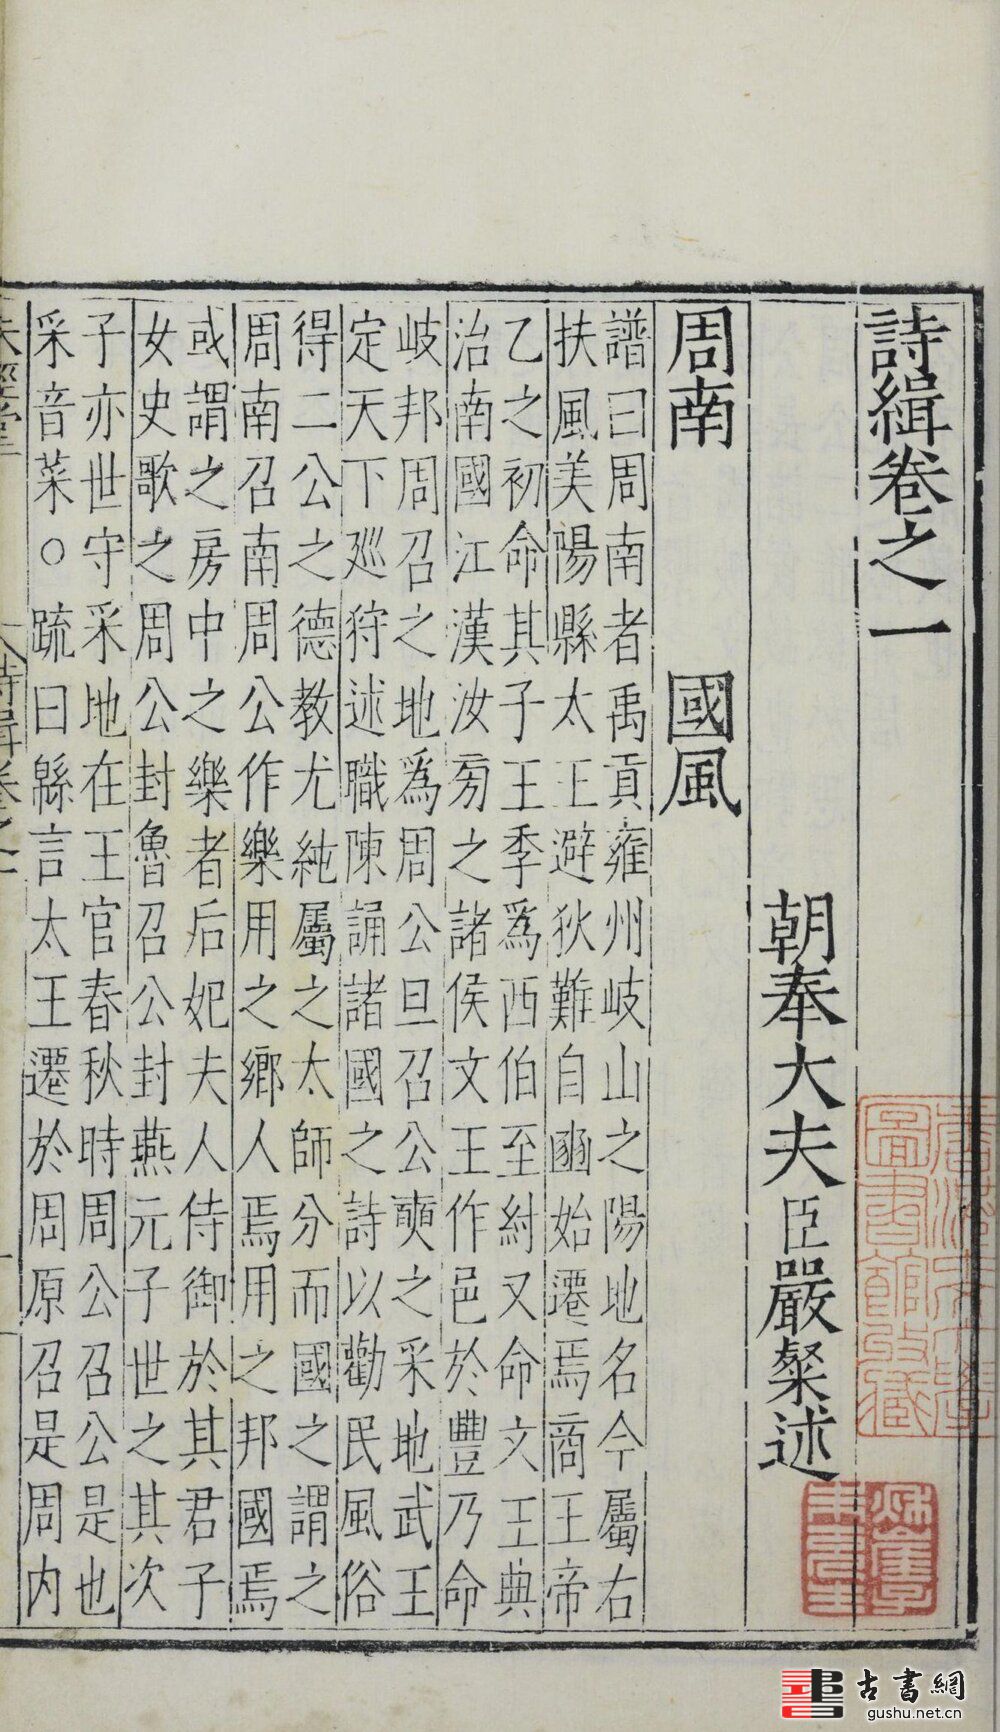 詩緝卷之一
朝奉大夫臣嚴粲述
周南 國風
譜曰周南者禹貢雍州岐山之陽地名今屬右
扶風美陽縣太王避狄難自豳始遷焉商王帝
乙之初命其子王季爲西伯至紂又命文王典
治南國江漢汝旁之諸侯文王作邑於豐乃命
岐邦周召之地爲周公旦召公奭之采地武王
定天下廵狩述職陳誦諸國之詩以勸民風俗
得二公之德教尤純屬之太師分而國之謂之
周南召南周公作樂用之鄉人焉用之邦國焉
或謂之房中之樂者后妃夫人侍御於其君子
女史歌之周公封魯召公封燕元子世之其次
子亦世守采地在王官春秋時周公召公是也
采音菜○疏曰緜言太王遷於周原召是周内
詩緝卷之一
古書網
gushu.net.cn